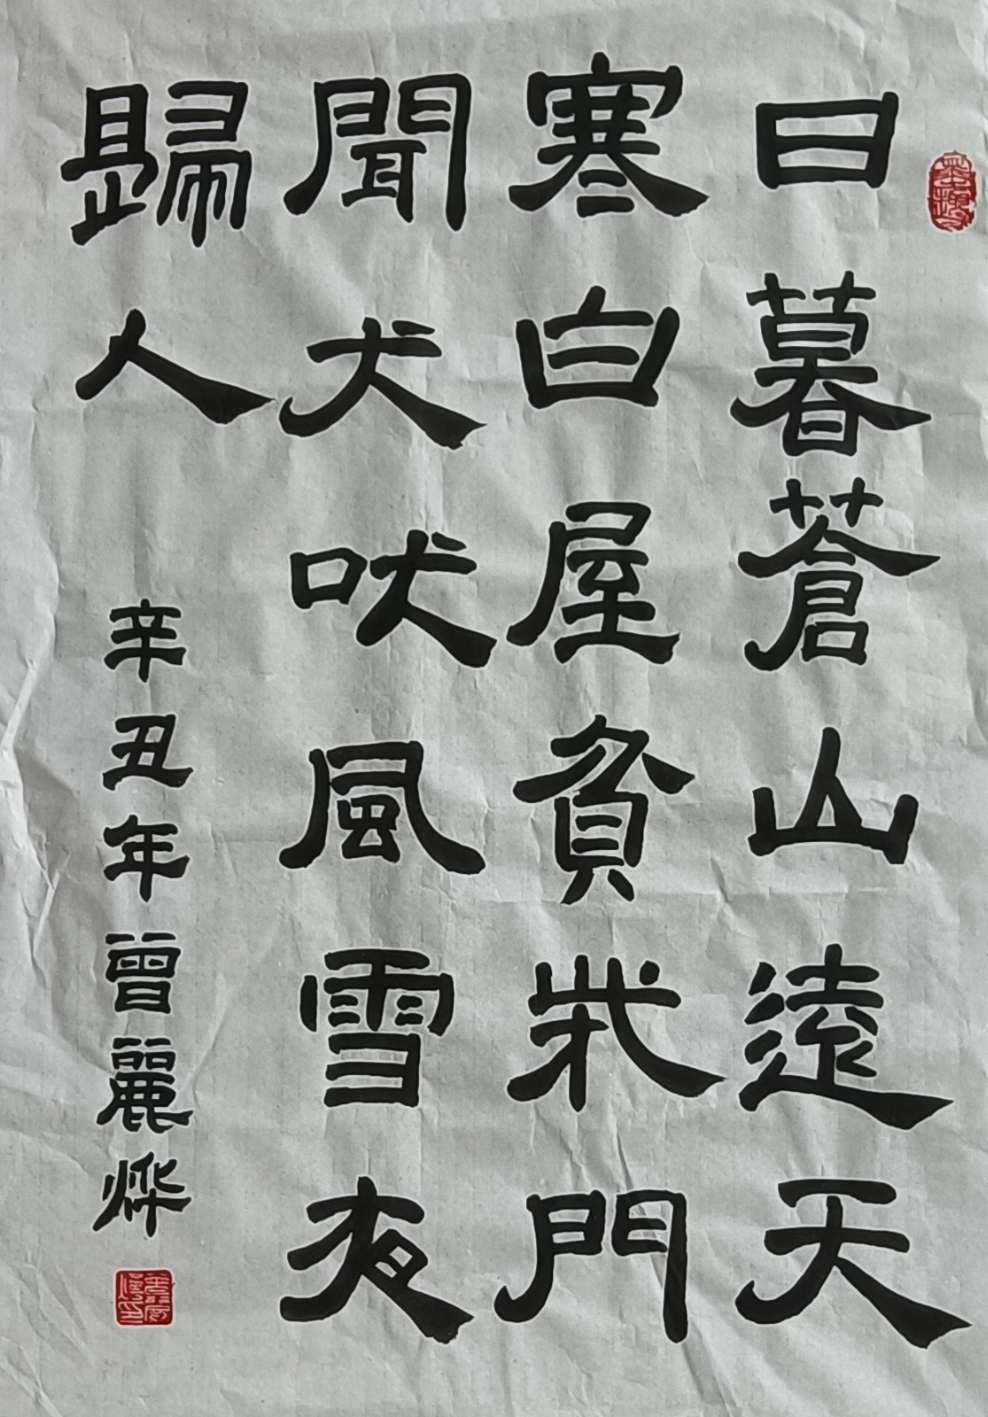 日暮蒼山遠天
寒白屋貧柴門
聞犬吠風雪夜
歸人
辛丑年曾麗烨